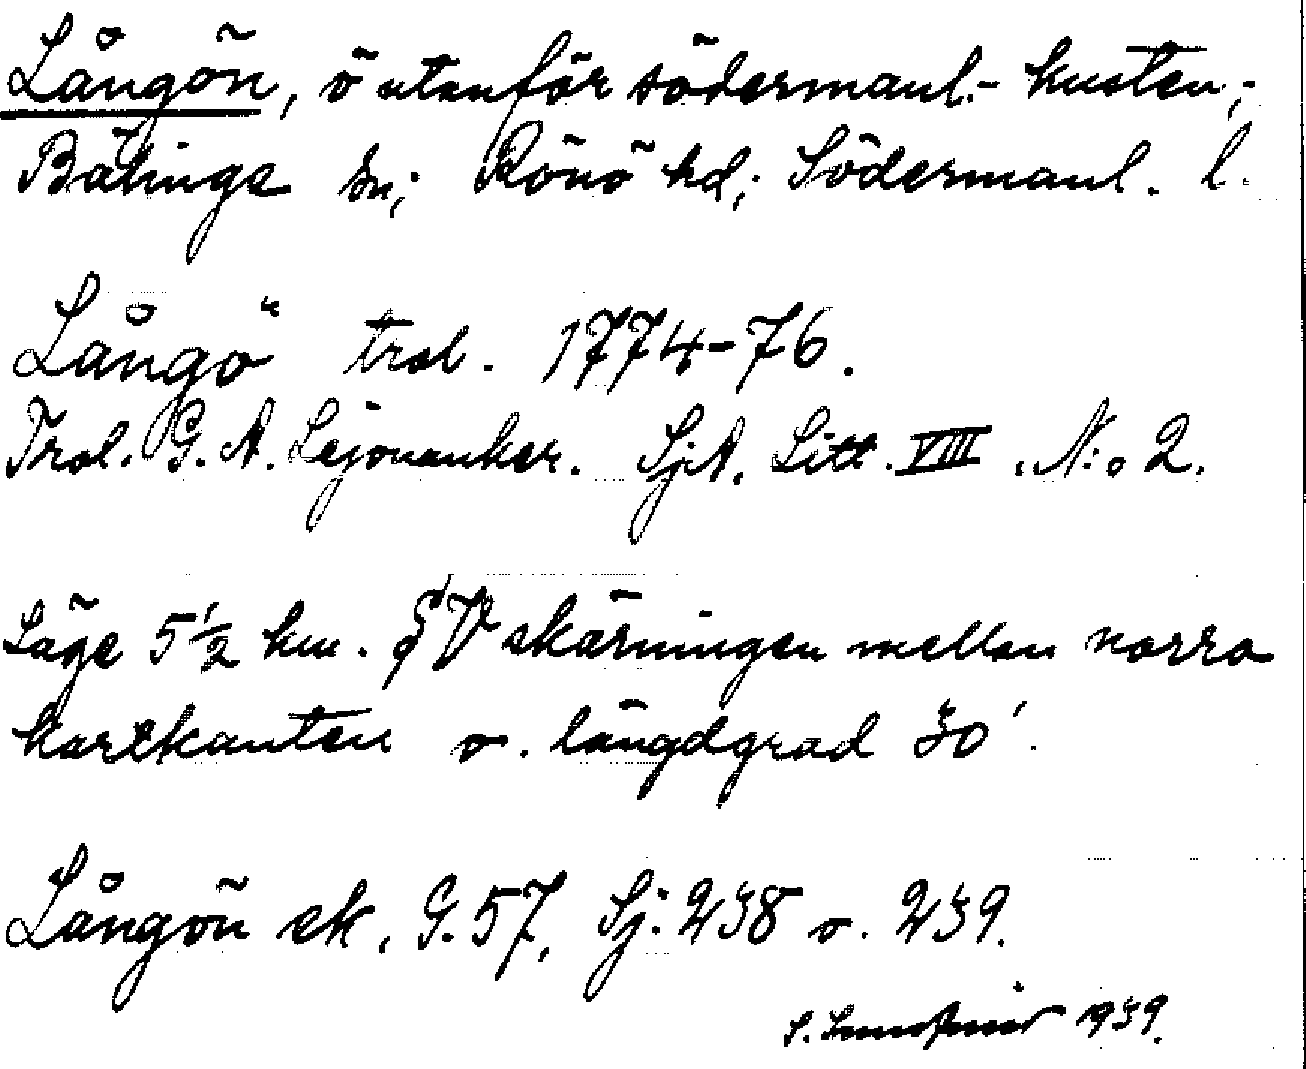 Långön, ö utanför södermanl.- kusten,-
Bälinge sn; Rönö hd; Södermanl. l.
Långö trol. 1774-76.
Trol. G. A. Lejonanker. SjA. Litt. VIII. N:o 2.
Läge 5½ km. SV skärningen mellan norra
kartkanten o. längdgrad 30'.
Långön ek. G. 57, Sj. 238 o. 239.
S. 1939.